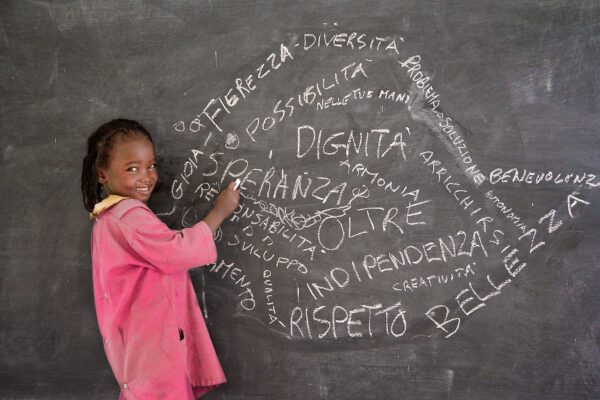 DIVERSITÀ
FIEREZZA
PROBLEMA-SOLUZIONE
POSSIBILITÀ
NELLE TUE MANI
DIGNITÀ
GIOIA
SPERANZA
ARMONIA
ARRICCHIRSI
BENEVOLENZA
AUTONOMIA
RESPONSABILITÀ
OLTRE
SVILUPPO
INDIPENDENZA
CREATIVITÀ
BELLEZZA
QUALITÀ
RISPETTO